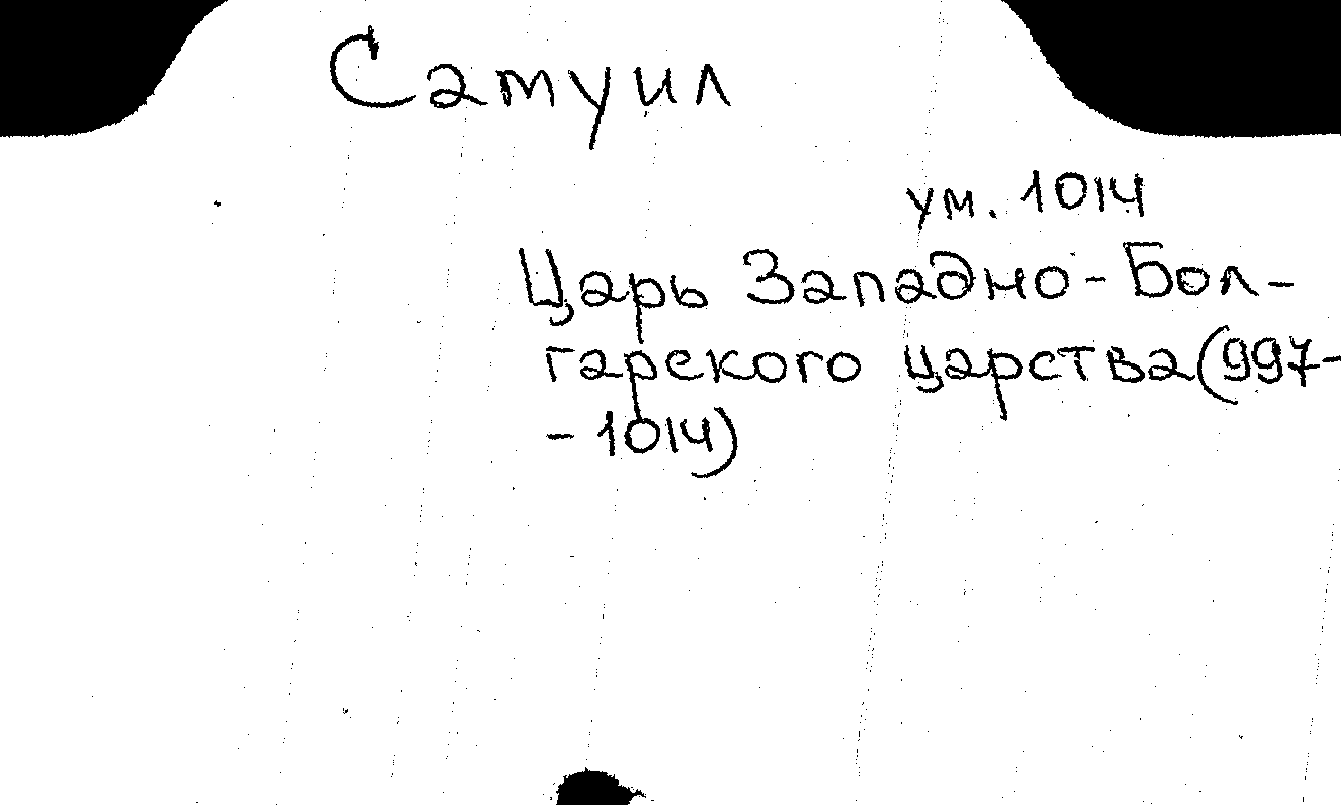 Самуил
ум. 1014
Царь Западно-Бол-
гарского царства (997-
- 1014)